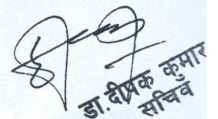 डा. दीपक कुमार
सचिव